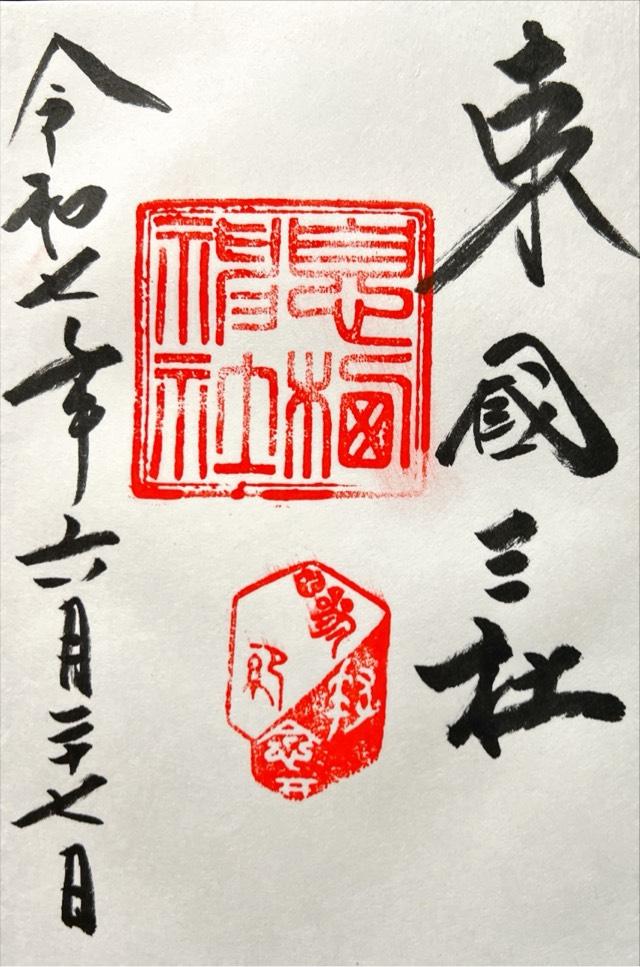 東國三社
息栖
神社
令和七年六月二十七日